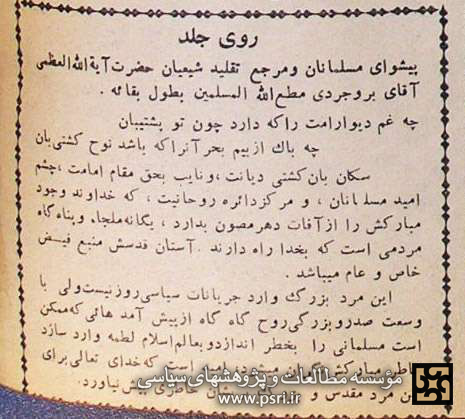 روی جلد
پیشوای مسلمانان ومرجع تقلید شیعیان حضرت آیةالله‌العظمی
آقای بروجردی متع‌الله المسلمین بطول بقائه .
چه غم دیوار امت راکه دارد چون تو پشتیبان
چه باك از بیم بحر آنراکه باشد نوح کشتی‌بان
سکان بان کشتی دیانت ،ونایب بحق مقام امامت ،چشم
امید مسلمانان ، و مرکز دائره روحانیت ، که خداوند وجود
مبارکش را از آفات دهر مصون بدارد ، یگانه ملجاء وپناه گاه
مردمی است که بخدا راه دارند . آستان قدسش منبع فیض
خاص و عام میباشد .
این مرد بزرگ وارد جریانات سیاسی روز نیست ولی با
وسعت صدر وبزرگی روح گاه گاه از پیش آمد هائی که ممکن
است مسلمانی را بخطر اندازد و بعالم اسلام لطمه وارد سازد
خاطر مبارکش نگران میشود است که خدای تعالی برای
این مرد مقدس و خاطری پیش نیاورد .
مؤسسه مطالعات و پژوهشهای سیاسی
www.psri.ir